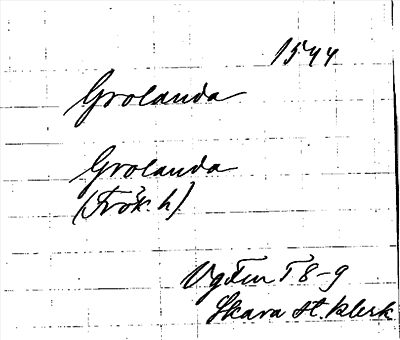 1544
Grolanda
Grolanda
(Frök. h)
Vg Fru T 8-9
Skara st. klerk